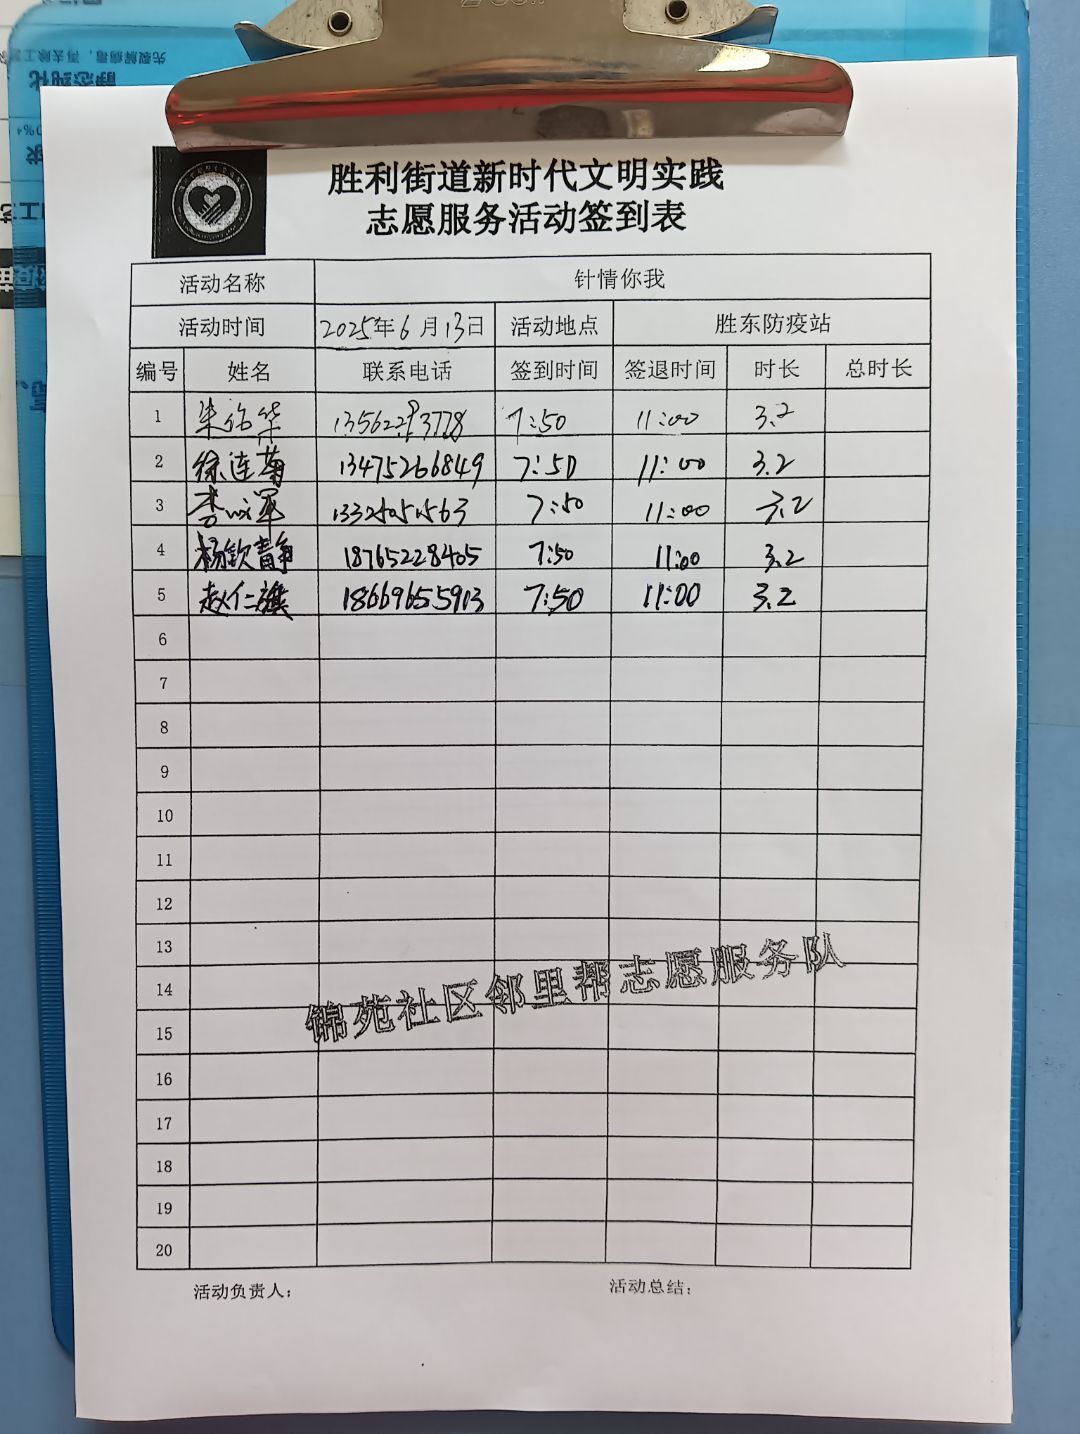 胜利街道新时代文明实践
志愿服务活动签到表
活动名称 针情你我
活动时间 2025年6月13日 活动地点 胜东防疫站
编号 姓名 联系电话 签到时间 签退时间 时长 总时长
1 13562293778 7:50 11:00 3.2
2 徐连菊 13475266849 7:50 11:00 3.2
3 7:50 11:00 3.2
4 杨钦静 18765228405 7:50 11:00 3.2
5 赵仁旗 18669655913 7:50 11:00 3.2
6
7
8
9
10
11
12
13
14
15
16
17
18
19
20
锦苑社区邻里帮志愿服务队
活动负责人： 活动总结：